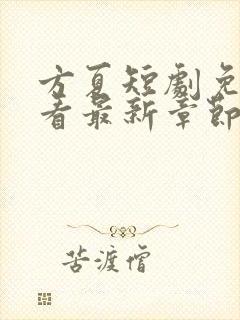 方夏短劇免
看最新章節
苦渡僧